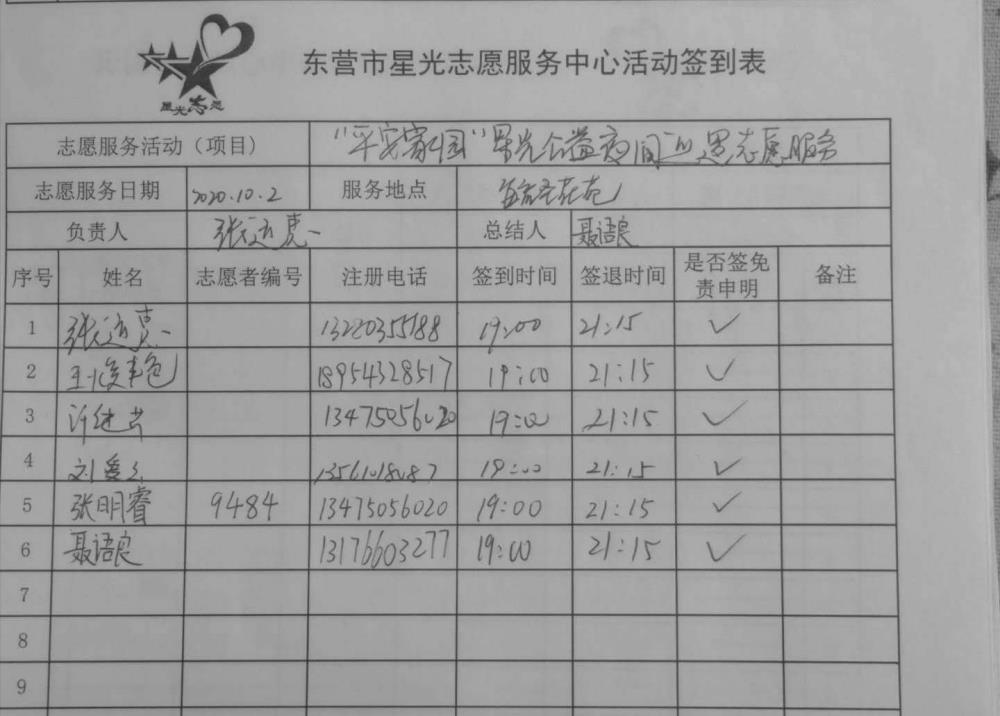 星光志愿
东营市星光志愿服务中心活动签到表
志愿服务活动（项目） "平安家园"星光公益夜间巡逻志愿服务
志愿服务日期 2020.10.2 服务地点
负责人 张 总结人 聂语良
序号 姓名 志愿者编号 注册电话 签到时间 签退时间 是否签免责申明 备注
1 张 13280355188 19:00 21:15 ✓
2 王俊 18954328517 19:00 21:15 ✓
3 许继 13475056020 19:00 21:15 ✓
4 刘爱 13561018087 19:00 21:15 ✓
5 张明睿 9484 13475056020 19:00 21:15 ✓
6 聂语良 13176603277 19:00 21:15 ✓
7
8
9